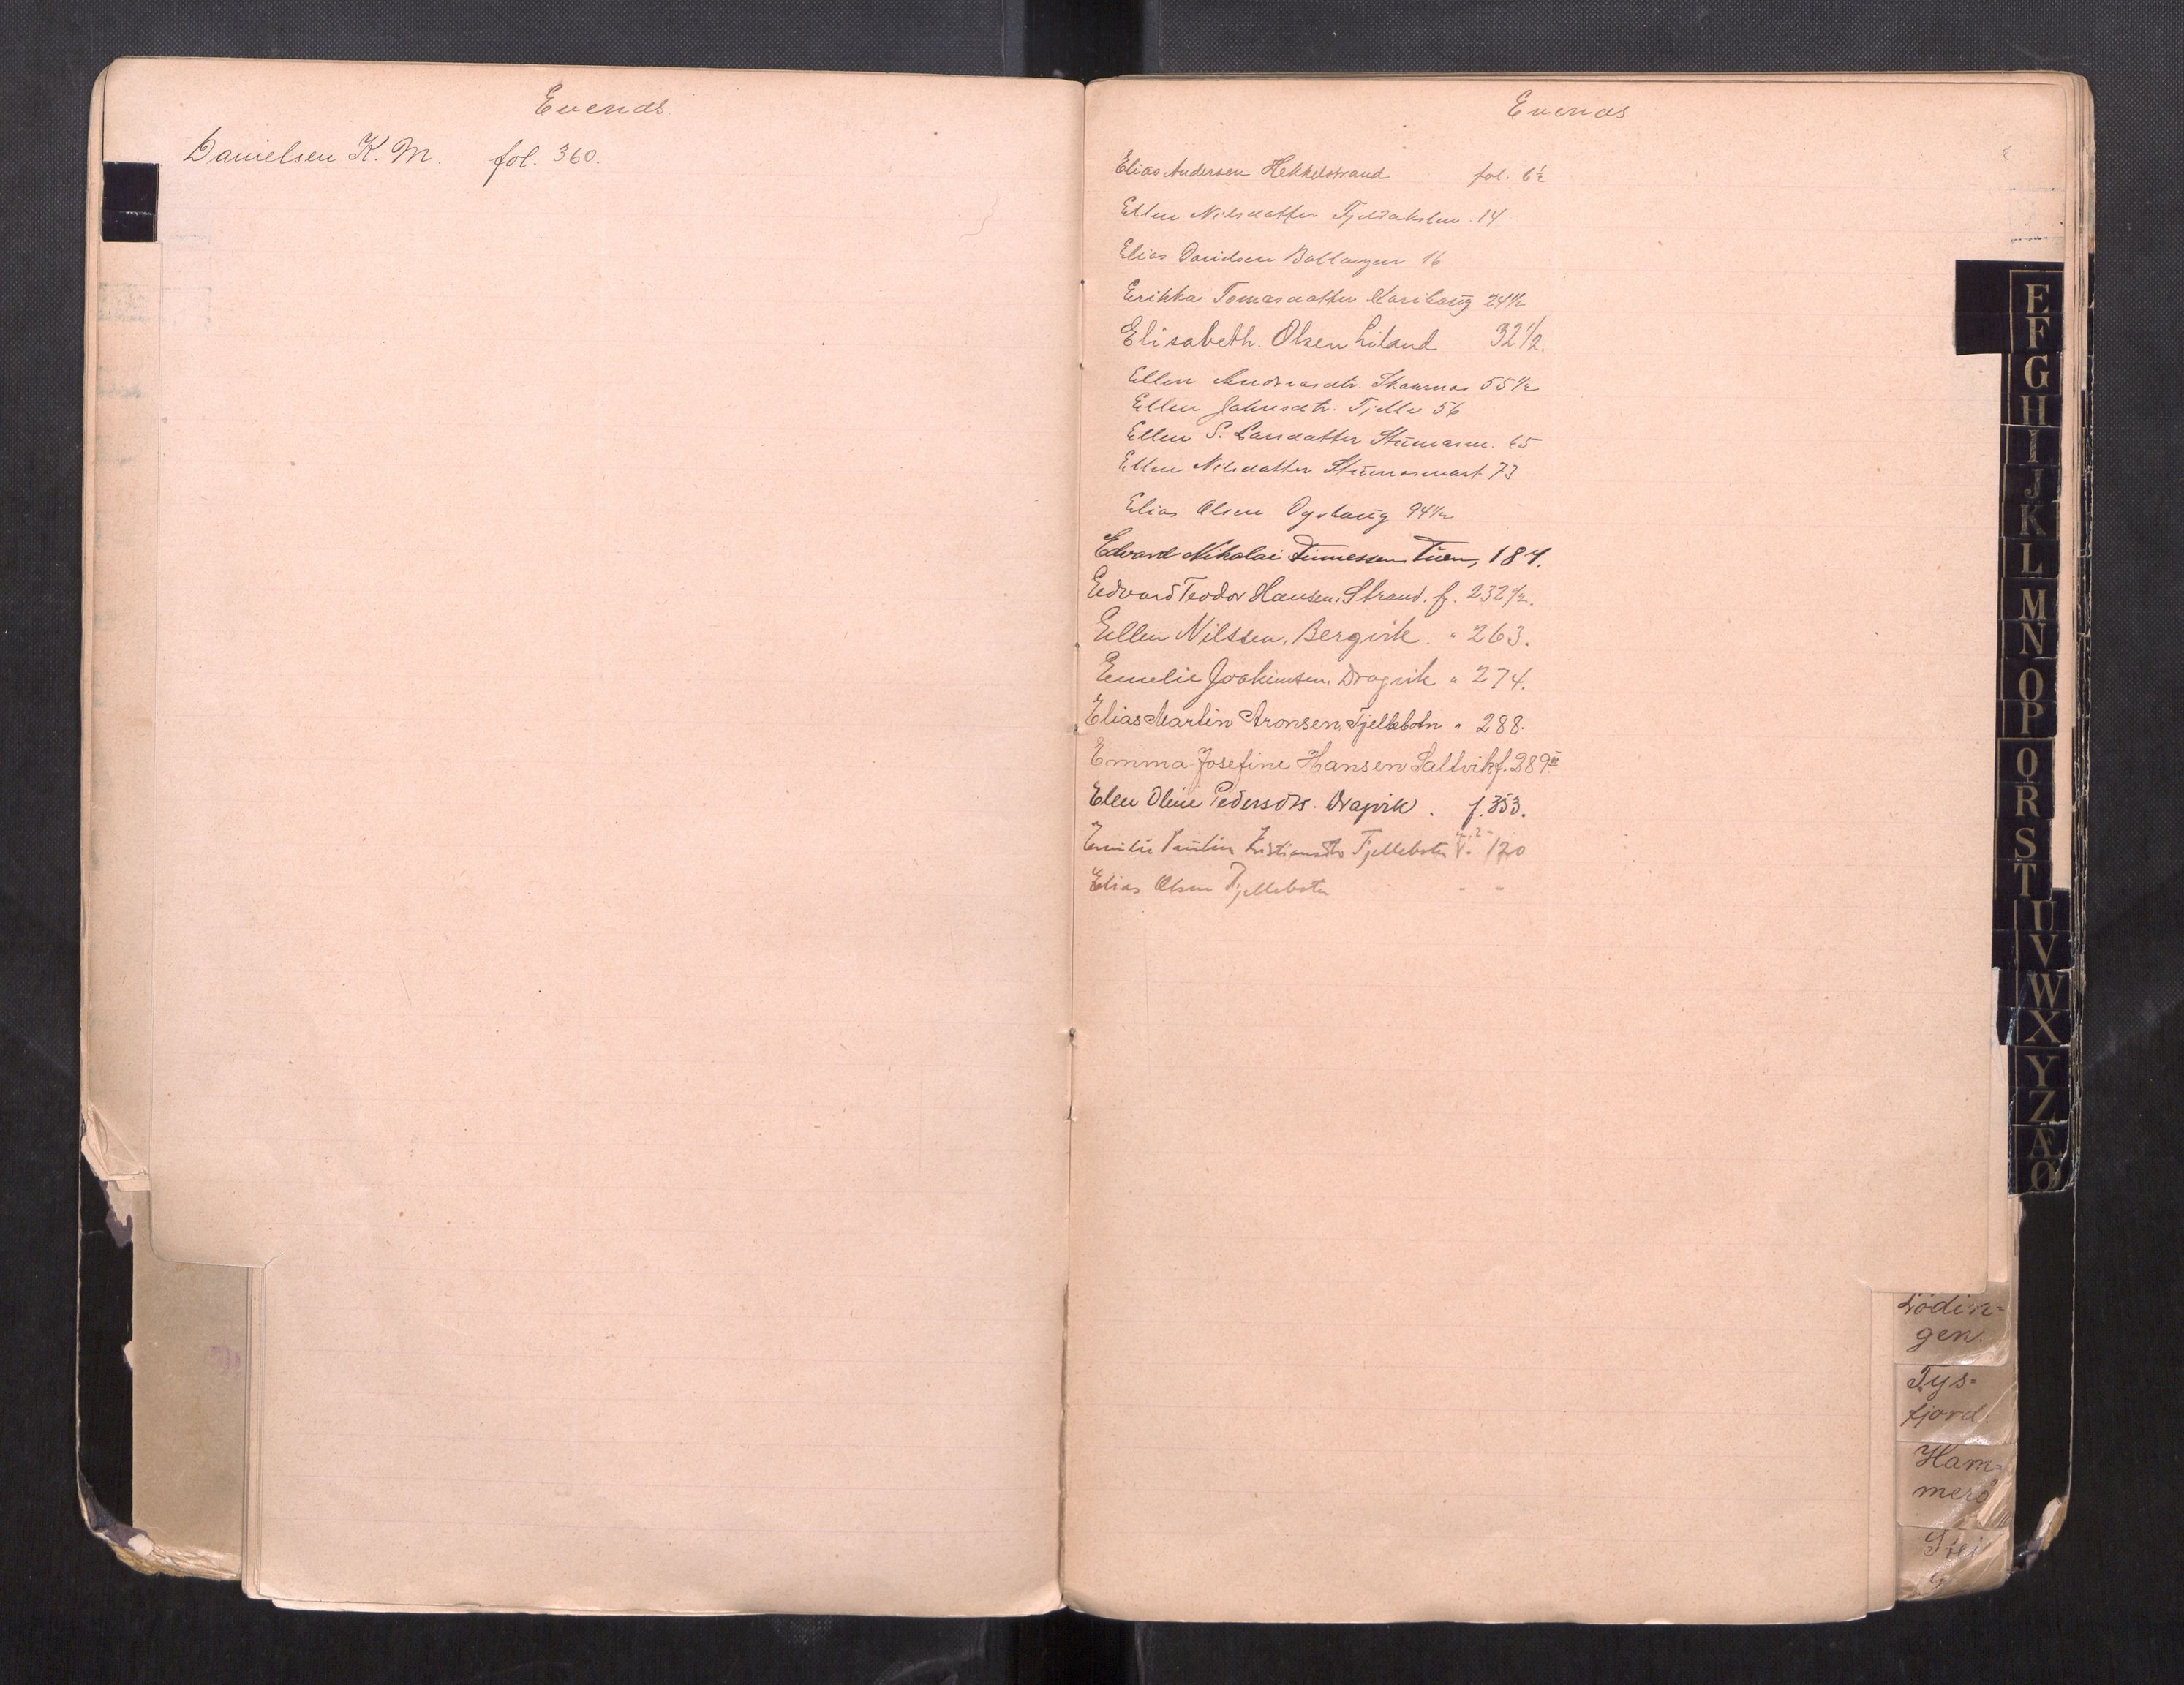 Evenes
Danielsen K. M. fol. 360.
Evenes
Elias Andersen Hekkelstrand fol. 6½
Ellen Nilsdatter Fjeldakslen 14
Elias Danielsen Ballangen 16
Erikka Tomasdatter 24½
Elisabeth. Olsen Liland 32½.
Ellen Andreasdtr. 55½
Ellen Johnsdtr. Tjelle 56
Ellen S. Larsdatter 65
Ellen Nilsdatter 73
Elias Olsen 94½
Edvard Nikolai 184.
Edvard Teodor Hansen, Strand. f. 232½.
Ellen Nilssen, Bergvik. " 263.
Emelie Joakimsen, Dragvik " 274.
Elias Martin Aronsen, Tjellebotn " 288.
Emma Josefine Hansen Saltvik f. 289
Ellen Oline Pedersdtr. Dragvik. f. 353.
Emilie Paulin Kristiansdtr Tjellebotn 120
Elias Olsen Tjellebotn " "
E
F
G
H
I
J
K
L
M
N
O
P
Q
R
S
T
U
V
W
X
Y
Z
Æ
Ø
Lødin-
gen.
Tys-
fjord.
Ham-
merø